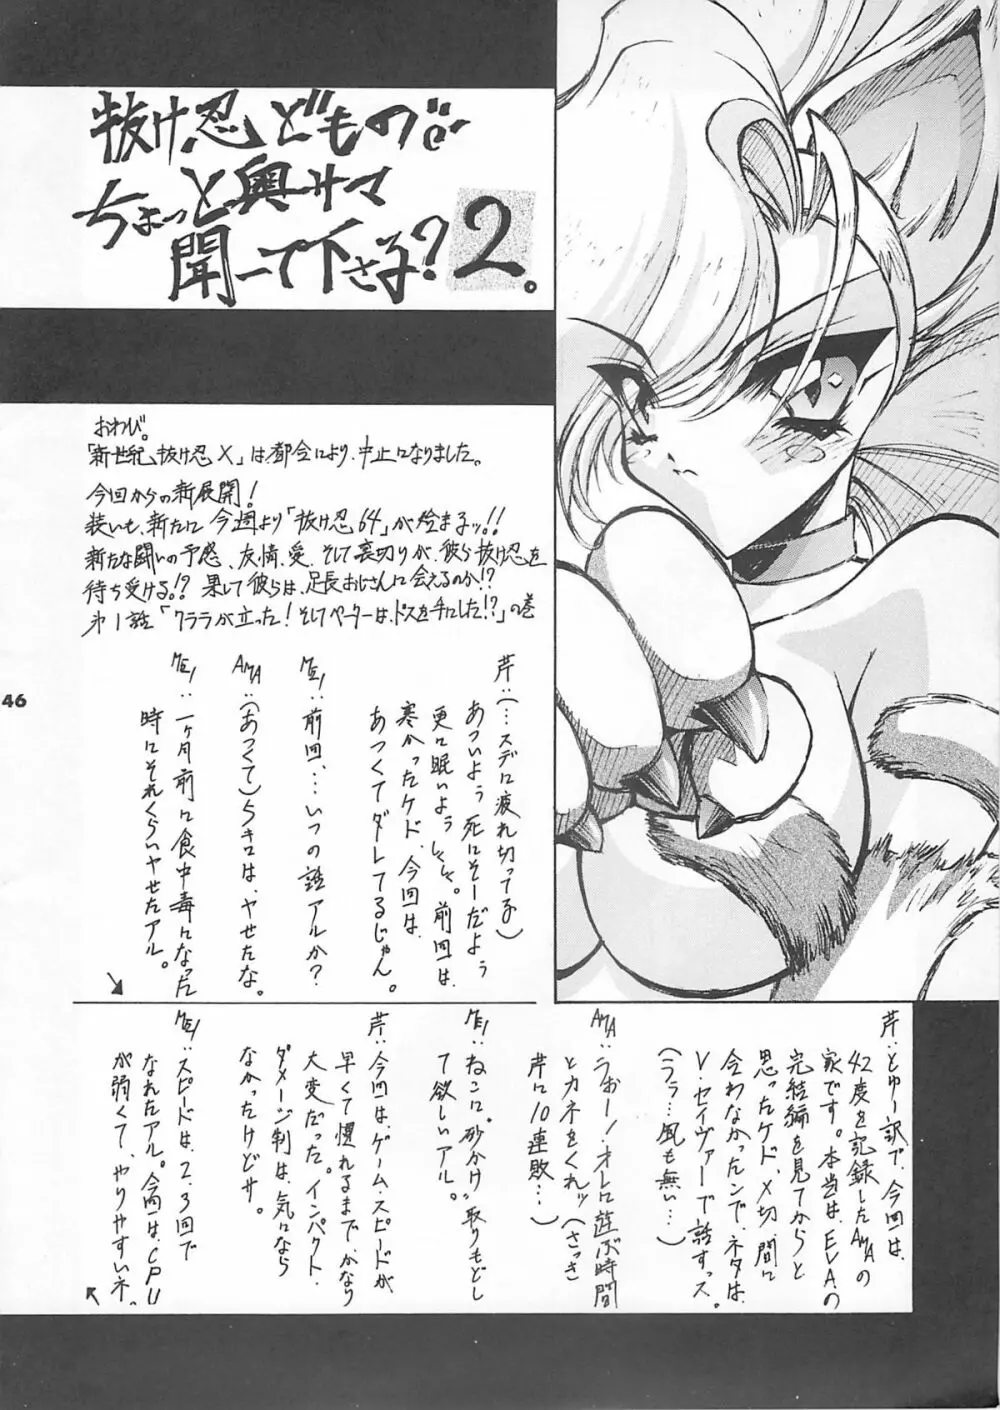 抜け忍どもの
ちょっと奥サマ
聞ーて下さる？2。
おわび。
「新世紀抜け忍X」は都合により、中止になりました。
今回からの新展開！
装いも新たに今週より「抜け忍64」が始まるッ!!
新たな闘いの予感、友情、愛、そして裏切りが、彼ら抜け忍を
待ち受ける!? 果して彼らは、足長おじさんに会えるのか!?
第1話「クララが立った！そしてペーターは、ドスを手にした!?」の巻
芹：(…スデに疲れ切ってる)
あついよう死にそーだよう
更に眠いようしくしく。前回は、
寒かったケド、今回は、
あつくてダレてるじゃん。
MEI：前回、…いつの話アルか？
AMA：(あつくて)らきロは、ヤせたな。
MEI：一ヶ月前に食中毒になった
時にそれくらいヤせたアル。
芹：とゆー訳で、今回は、
42度を記録したAMAの
家です。本当は、EVAの
完結編を見てからと
思ったケド、〆切、間に
合わなかったンで、ネタは、
V・セイヴァーで話すっス。
(うララ…風も無い…)
AMA：うおー！オレに遊ぶ時間
とカネをくれッ(さっき
芹に10連敗…)
MEI：ねこに"砂かけ"取りもどし
て欲しいアル。
芹：今回はゲーム・スピードが
早くて慣れるまでかなり
大変だった。インパクト、
ダメージ判は、気になら
なかったけどサ。
MEI：スピードは、2、3回で
なれたアル。今回は、CPU
が弱くて、やりやすいネ。
46